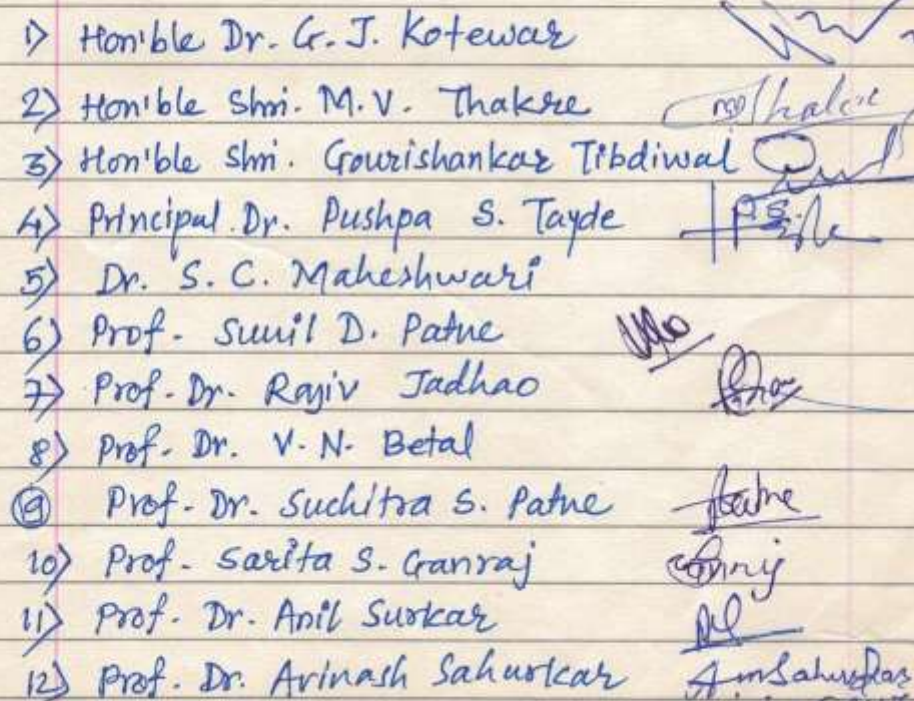 1) Hon'ble Dr. G. J. Kotewar
2) Hon'ble Shri. M.V. Thakre
3) Hon'ble Shri. Gourishankar Tibdiwal
4) Principal Dr. Pushpa S. Tayde
5) Dr. S. C. Maheshwari
6) Prof. Sunil D. Patne
7) Prof. Dr. Rajiv Jadhao
8) Prof. Dr. V. N. Betal
9) Prof. Dr. Suchitra S. Patne
10) Prof. Sarita S. Ganraj
11) Prof. Dr. Anil Surkar
12) Prof. Dr. Avinash Sahurkar